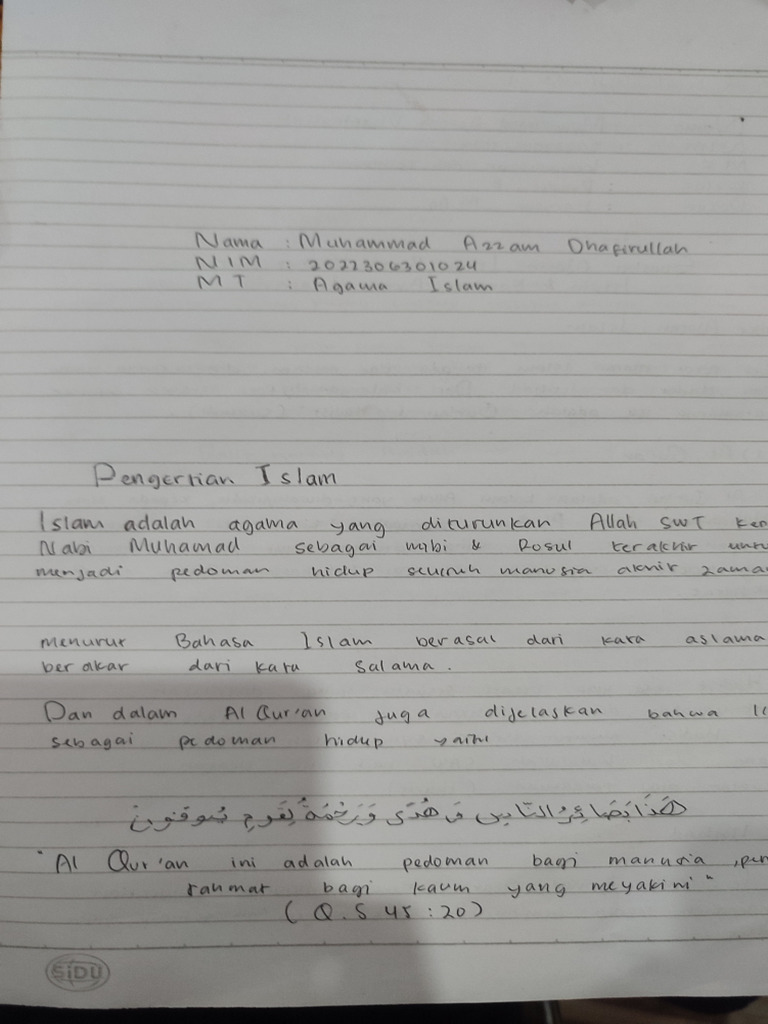 Nama : Muhammad Azzam Dhafirullah
NIM : 2022306301024
MT : Agama Islam
Pengertian Islam
Islam adalah agama yang diturunkan Allah SWT kep
Nabi Muhamad sebagai nabi & Rosul terakhir untu
menjadi pedoman hidup seluruh manusia akhir zama
menurut Bahasa Islam berasal dari kata aslama
berakar dari kata Salama.
Dan dalam Al Qur'an juga dijelaskan bahwa
sebagai pedoman hidup yaitu
هَذَا بَصَائِرُ لِلنَّاسِ وَ هُدًى وَرَحْمَةٌ لِقَوْمٍ يُوقِنُونَ
"Al Qur'an ini adalah pedoman bagi manusia, pe
rahmat bagi kaum yang meyakini"
(Q.S 45:20)
SiDU